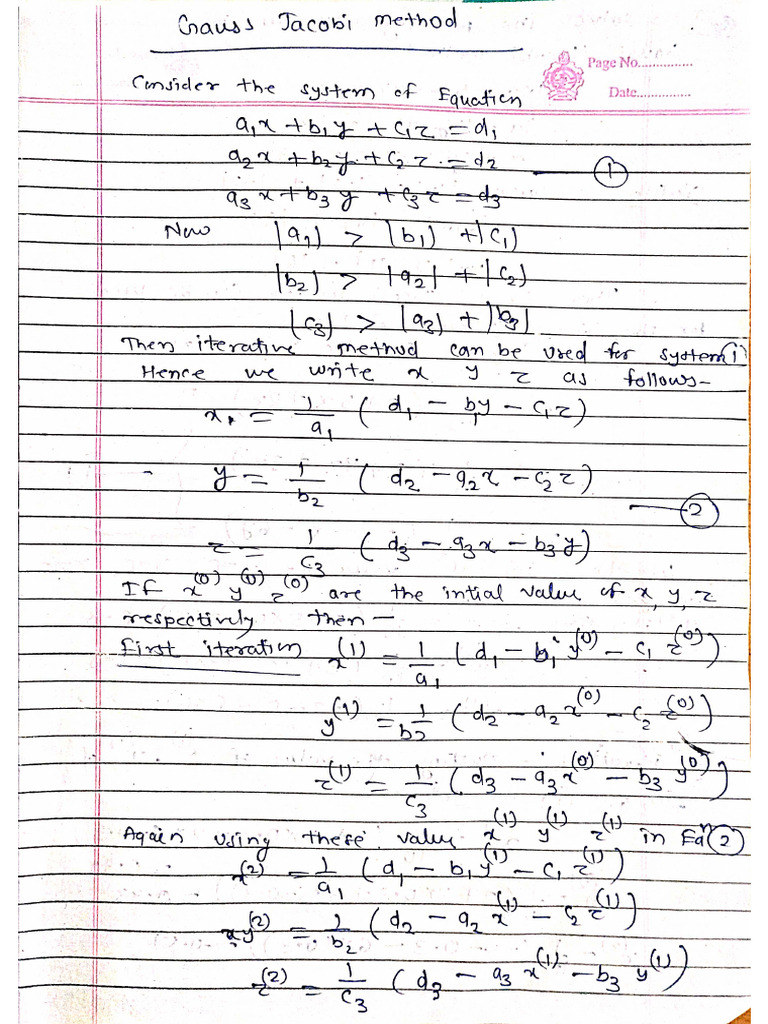 Gauss Jacobi method.
Page No...............
Date..............
Consider the system of Equation
a₁x + b₁y + c₁z = d₁
a₂x + b₂y + c₂z = d₂ —— ①
a₃x + b₃y + c₃z = d₃
Now |a₁| > |b₁| + |c₁|
|b₂| > |a₂| + |c₂|
|c₃| > |a₃| + |b₃|
Then iterative method can be used for system ①
Hence we write x y z as follows-
x = 1/a₁ (d₁ - b₁y - c₁z)
y = 1/b₂ (d₂ - a₂x - c₂z)
—— ②
z = 1/c₃ (d₃ - a₃x - b₃y)
If x⁽⁰⁾ y⁽⁰⁾ z⁽⁰⁾ are the intial value of x, y, z
respectively then —
First iteration x⁽¹⁾ = 1/a₁ (d₁ - b₁y⁽⁰⁾ - c₁z⁽⁰⁾)
y⁽¹⁾ = 1/b₂ (d₂ - a₂x⁽⁰⁾ - c₂z⁽⁰⁾)
z⁽¹⁾ = 1/c₃ (d₃ - a₃x⁽⁰⁾ - b₃y⁽⁰⁾)
Again using these value x⁽¹⁾ y⁽¹⁾ z⁽¹⁾ in Eqⁿ ②
x⁽²⁾ = 1/a₁ (d₁ - b₁y⁽¹⁾ - c₁z⁽¹⁾)
y⁽²⁾ = 1/b₂ (d₂ - a₂x⁽¹⁾ - c₂z⁽¹⁾)
z⁽²⁾ = 1/c₃ (d₃ - a₃x⁽¹⁾ - b₃y⁽¹⁾)